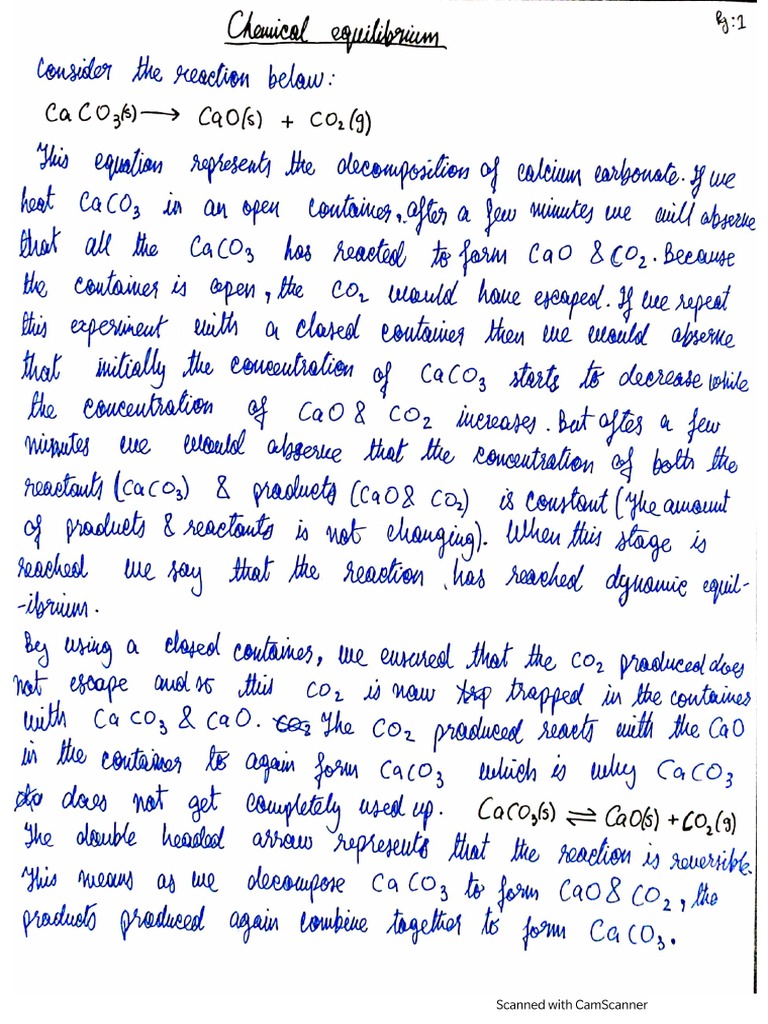 Chemical equilibrium
Pg:1
Consider the reaction below:
CaCO₃(s) → CaO(s) + CO₂(g)
This equation represents the decomposition of calcium carbonate. If we
heat CaCO₃ in an open container, after a few minutes we will observe
that all the CaCO₃ has reacted to form CaO & CO₂. Because
the container is open, the CO₂ would have escaped. If we repeat
this experiment with a closed container then we would observe
that initially the concentration of CaCO₃ starts to decrease while
the concentration of CaO & CO₂ increases. But after a few
minutes we would observe that the concentration of both the
reactants (CaCO₃) & products (CaO & CO₂) is constant (The amount
of products & reactants is not changing). When this stage is
reached we say that the reaction has reached dynamic equil-
-ibrium.
By using a closed container, we ensured that the CO₂ produced does
not escape and so this CO₂ is now trapped in the container
with CaCO₃ & CaO. The CO₂ produced reacts with the CaO
in the container to again form CaCO₃ which is why CaCO₃
does not get completely used up. CaCO₃(s) ⇌ CaO(s) + CO₂(g)
The double headed arrow represents that the reaction is reversible.
This means as we decompose CaCO₃ to form CaO & CO₂, the
products produced again combine together to form CaCO₃.
Scanned with CamScanner